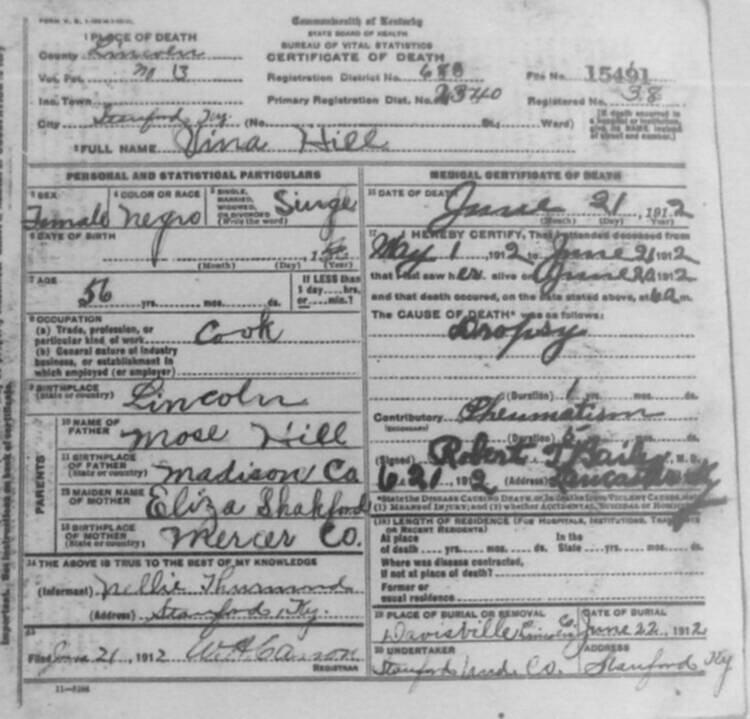 Commonwealth of Kentucky
STATE BOARD OF HEALTH
BUREAU OF VITAL STATISTICS
CERTIFICATE OF DEATH
1 PLACE OF DEATH
County Lincoln
Vot. Pct. No 13
Inc. Town
City Stanford Ky. (No. St.; Ward)
Registration District No.
Primary Registration Dist. No. 2340
File No. 15461
Registered No. 38
[If death occurred in a hospital or institution, give its NAME instead of street and number.]
2 FULL NAME Vina Hill
PERSONAL AND STATISTICAL PARTICULARS
3 SEX
Female
4 COLOR OR RACE
Negro
5 SINGLE, MARRIED, WIDOWED, OR DIVORCED (Write the word)
Single
6 DATE OF BIRTH
(Month) (Day) (Year)
7 AGE
56 yrs. mos. ds.
If LESS than 1 day hrs. or min.?
8 OCCUPATION
(a) Trade, profession, or particular kind of work Cook
(b) General nature of industry business, or establishment in which employed (or employer)
9 BIRTHPLACE (State or country) Lincoln
PARENTS
10 NAME OF FATHER Mose Hill
11 BIRTHPLACE OF FATHER (State or country) Madison Co
12 MAIDEN NAME OF MOTHER Eliza
13 BIRTHPLACE OF MOTHER (State or country) Mercer Co.
14 THE ABOVE IS TRUE TO THE BEST OF MY KNOWLEDGE
(Informant) Nellie Thurmond
(Address) Stanford, Ky.
15
Filed June 21, 1912 REGISTRAR
11—3298
MEDICAL CERTIFICATE OF DEATH
16 DATE OF DEATH
June 21, 1912
(Month) (Day) (Year)
17 I HEREBY CERTIFY, That I attended deceased from
May 1, 1912 to June 21 1912
that I last saw her alive on June 1912
and that death occured, on the date stated above, at 6 a m.
The CAUSE OF DEATH* was as follows:
Dropsy
(Duration) 1 yrs. mos. ds.
Contributory Rheumatism
(Duration) yrs. mos. ds.
(Signed) Robert T Baily, M. D.
6 21, 1912 (Address) Lancaster Ky
*State the DISEASE CAUSING DEATH, or, in deaths from VIOLENT CAUSES, state (1) MEANS OF INJURY; and (2) whether ACCIDENTAL, SUICIDAL OR HOMICIDAL
18 LENGTH OF RESIDENCE (FOR HOSPITALS, INSTITUTIONS, OR RECENT RESIDENTS)
At place of death yrs. mos. ds. In the State yrs. mos. ds.
Where was disease contracted, If not at place of death?
Former or usual residence
19 PLACE OF BURIAL OR REMOVAL
Davisville Lincoln Co.
DATE OF BURIAL
June 22, 1912
20 UNDERTAKER
Stanford Und. Co.
ADDRESS
Stanford Ky